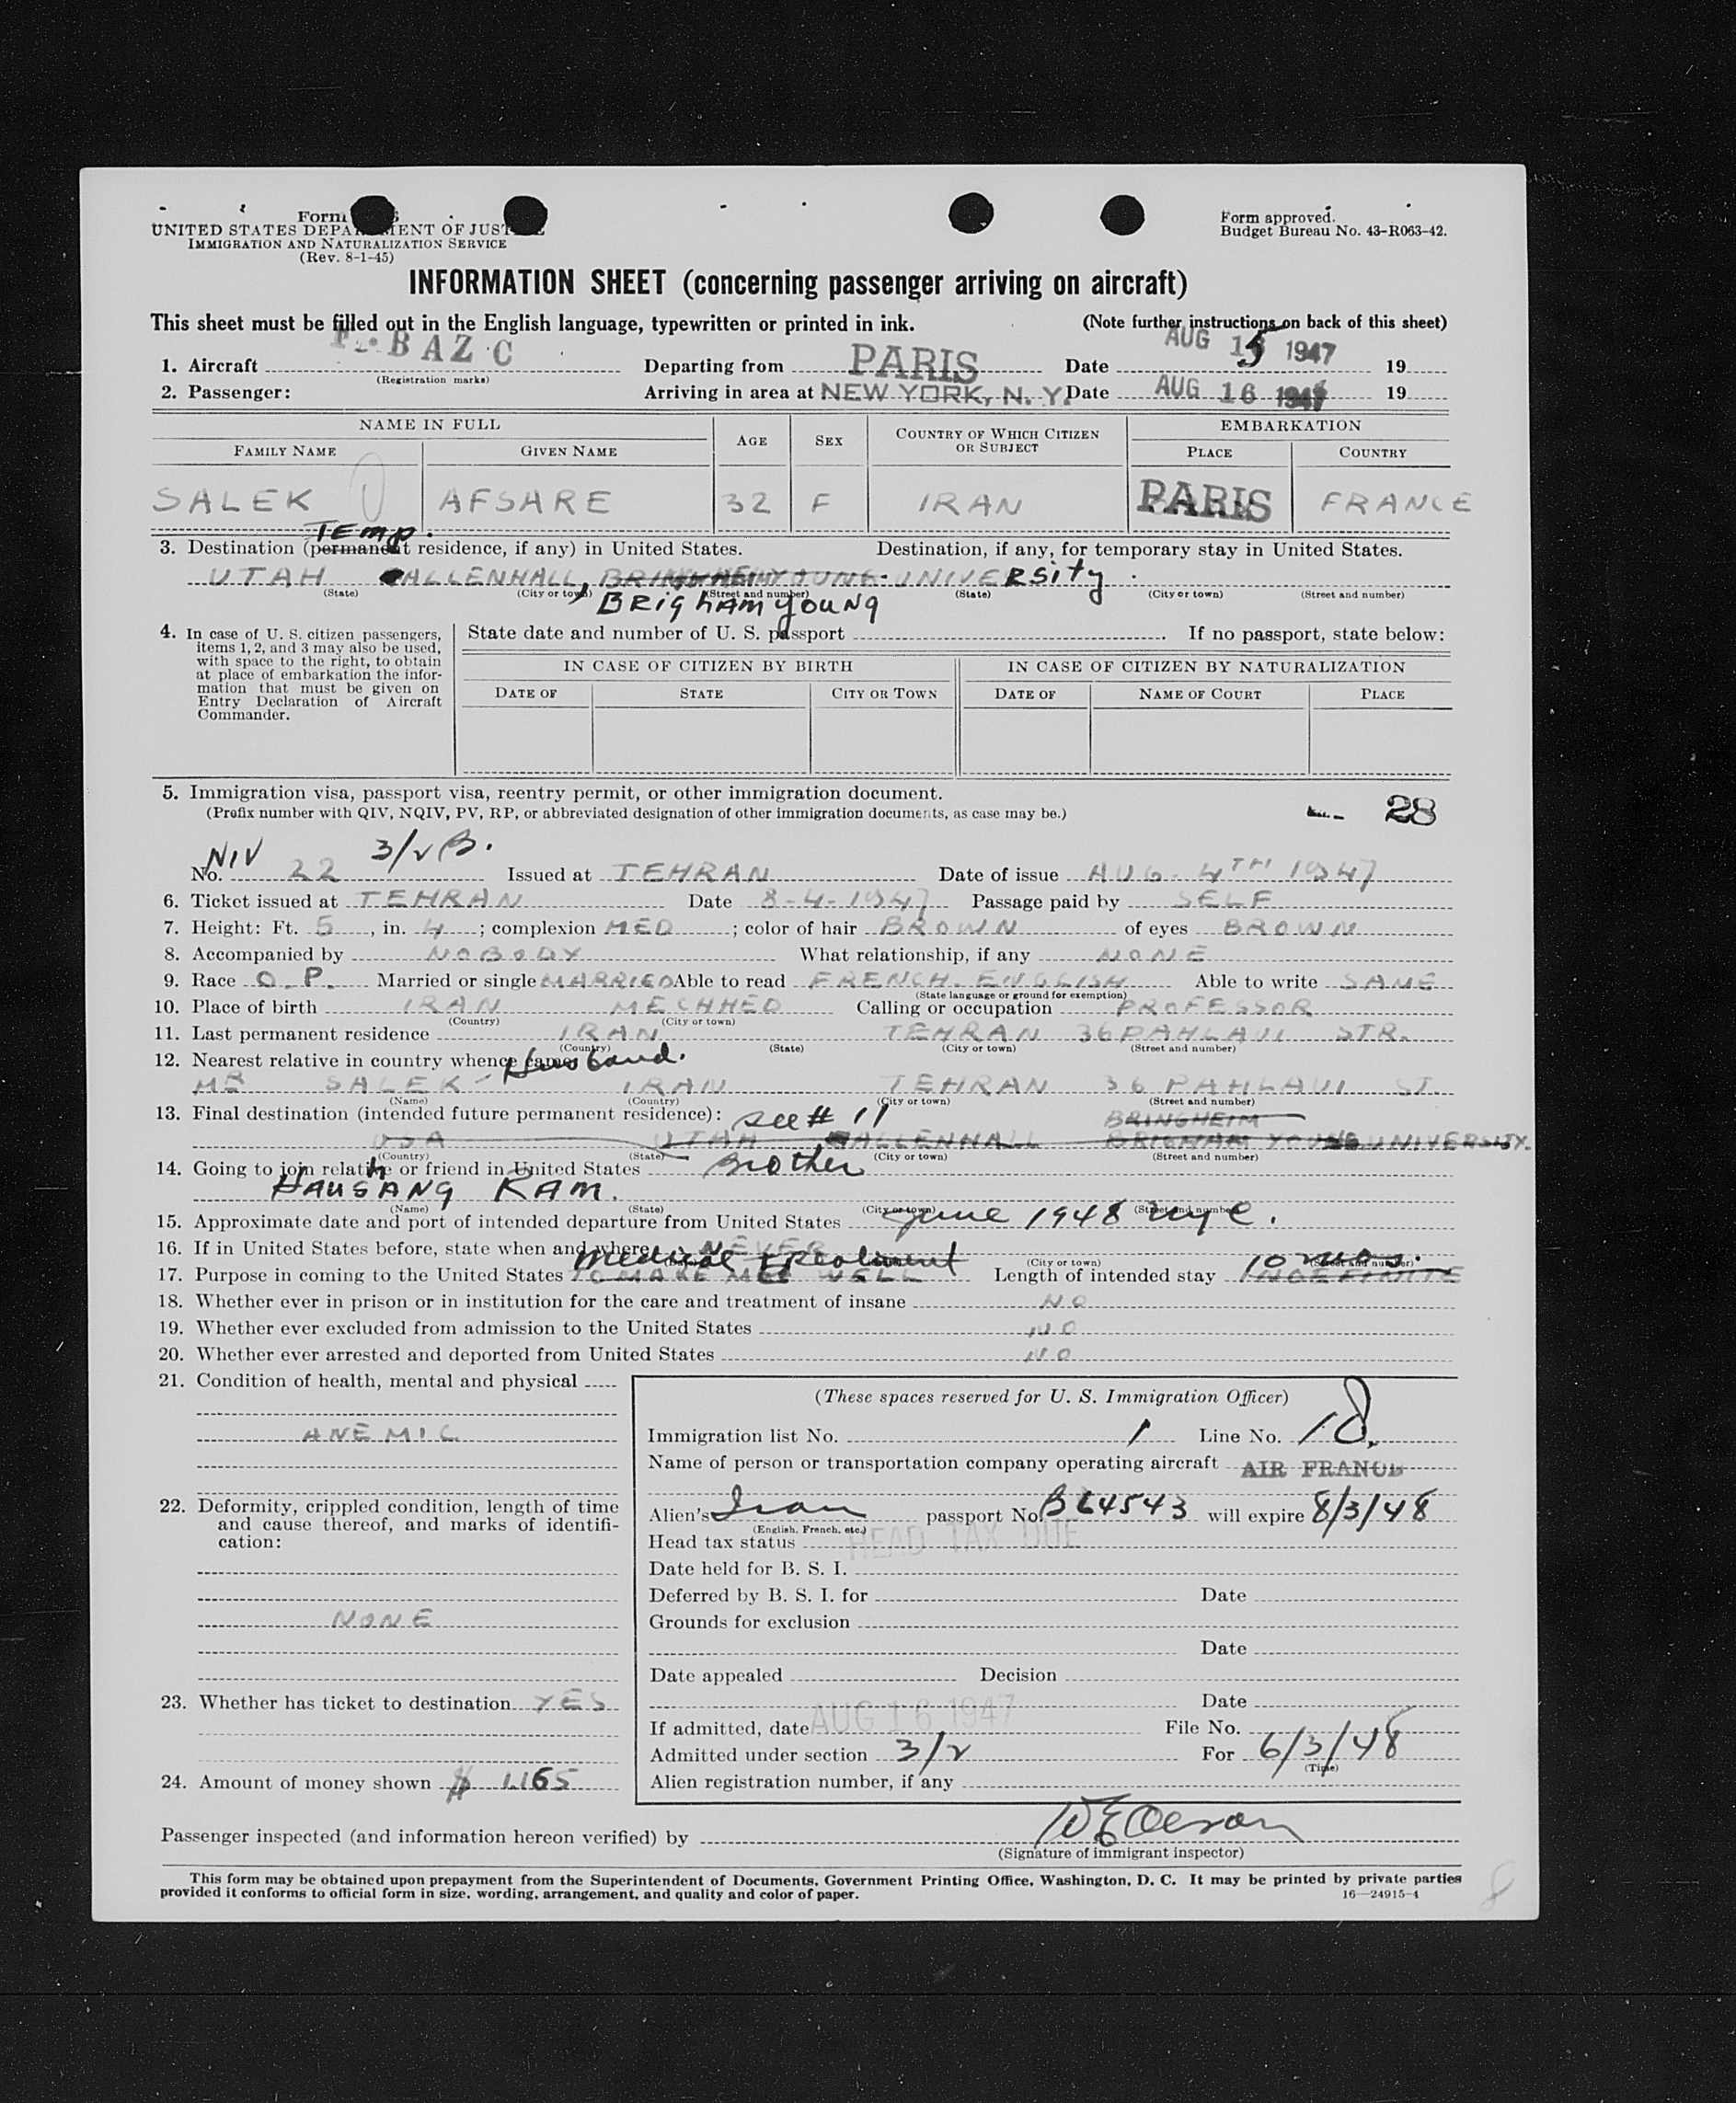 Form
UNITED STATES DEPARTMENT OF JUSTICE
IMMIGRATION AND NATURALIZATION SERVICE
(Rev. 8-1-45)
Form approved.
Budget Bureau No. 43-R063-42.
INFORMATION SHEET (concerning passenger arriving on aircraft)
This sheet must be filled out in the English language, typewritten or printed in ink. (Note further instructions on back of this sheet)
1. Aircraft F. BAZC Departing from PARIS Date AUG 15 1947 19
(Registration marks)
2. Passenger: Arriving in area at NEW YORK, N. Y. Date AUG 16 1947 19
NAME IN FULL AGE SEX COUNTRY OF WHICH CITIZEN OR SUBJECT EMBARKATION
FAMILY NAME GIVEN NAME PLACE COUNTRY
SALEK AFSARE 32 F IRAN PARIS FRANCE
TEMP.
3. Destination (permanent residence, if any) in United States. Destination, if any, for temporary stay in United States.
UTAH ALLENHALL, UNIVERSITY.
(State) (City or town) (Street and number) (State) (City or town) (Street and number)
BRIGHAM YOUNG
4. In case of U. S. citizen passengers, items 1, 2, and 3 may also be used, with space to the right, to obtain at place of embarkation the information that must be given on Entry Declaration of Aircraft Commander.
State date and number of U. S. passport . If no passport, state below:
IN CASE OF CITIZEN BY BIRTH IN CASE OF CITIZEN BY NATURALIZATION
DATE OF STATE CITY OR TOWN DATE OF NAME OF COURT PLACE
5. Immigration visa, passport visa, reentry permit, or other immigration document.
(Prefix number with QIV, NQIV, PV, RP, or abbreviated designation of other immigration documents, as case may be.) 28
NIV 3/2 B.
No. 22 Issued at TEHRAN Date of issue AUG. 4TH 1947
6. Ticket issued at TEHRAN Date 8-4-1947 Passage paid by SELF
7. Height: Ft. 5, in. 4; complexion MED; color of hair BROWN of eyes BROWN
8. Accompanied by NOBODY What relationship, if any NONE
9. Race O.P. Married or single MARRIED Able to read FRENCH. ENGLISH Able to write SAME
(State language or ground for exemption)
10. Place of birth IRAN MECHHED Calling or occupation PROFESSOR
(Country) (City or town)
11. Last permanent residence IRAN TEHRAN 36 PAHLAVI STR.
(Country) (State) (City or town) (Street and number)
12. Nearest relative in country whence came: Husband.
MR SALEK - IRAN TEHRAN 36 PAHLAVI ST.
(Name) (Country) (City or town) (Street and number)
13. Final destination (intended future permanent residence): see # 11 BRINGHEIM
USA UTAH ALLENHALL BRIGHAM YOUNG UNIVERSITY.
(Country) (State) (City or town) (Street and number)
14. Going to join relative or friend in United States Brother
HAUSHANG RAM.
(Name) (State) (City or town) (Street and number)
15. Approximate date and port of intended departure from United States June 1948 nyc.
16. If in United States before, state when and where NEVER
(City or town) (Street and number)
Medical treatment 10 mos.
17. Purpose in coming to the United States TO MAKE ME WELL Length of intended stay INDEFINITE
18. Whether ever in prison or in institution for the care and treatment of insane NO
19. Whether ever excluded from admission to the United States NO
20. Whether ever arrested and deported from United States NO
21. Condition of health, mental and physical
ANEMIC
22. Deformity, crippled condition, length of time and cause thereof, and marks of identification:
NONE
23. Whether has ticket to destination YES
24. Amount of money shown $ 1165
(These spaces reserved for U. S. Immigration Officer)
Immigration list No. 1 Line No. 18.
Name of person or transportation company operating aircraft AIR FRANCE
Alien's Iran passport No. B64543 will expire 8/3/48
(English, French, etc.)
Head tax status HEAD TAX DUE
Date held for B. S. I.
Deferred by B. S. I. for Date
Grounds for exclusion
Date
Date appealed Decision
Date
If admitted, date AUG 16 1947 File No.
Admitted under section 3/2 For 6/3/48
(Time)
Alien registration number, if any
Passenger inspected (and information hereon verified) by
(Signature of immigrant inspector)
This form may be obtained upon prepayment from the Superintendent of Documents, Government Printing Office, Washington, D. C. It may be printed by private parties
provided it conforms to official form in size, wording, arrangement, and quality and color of paper. 16—24915-4
8